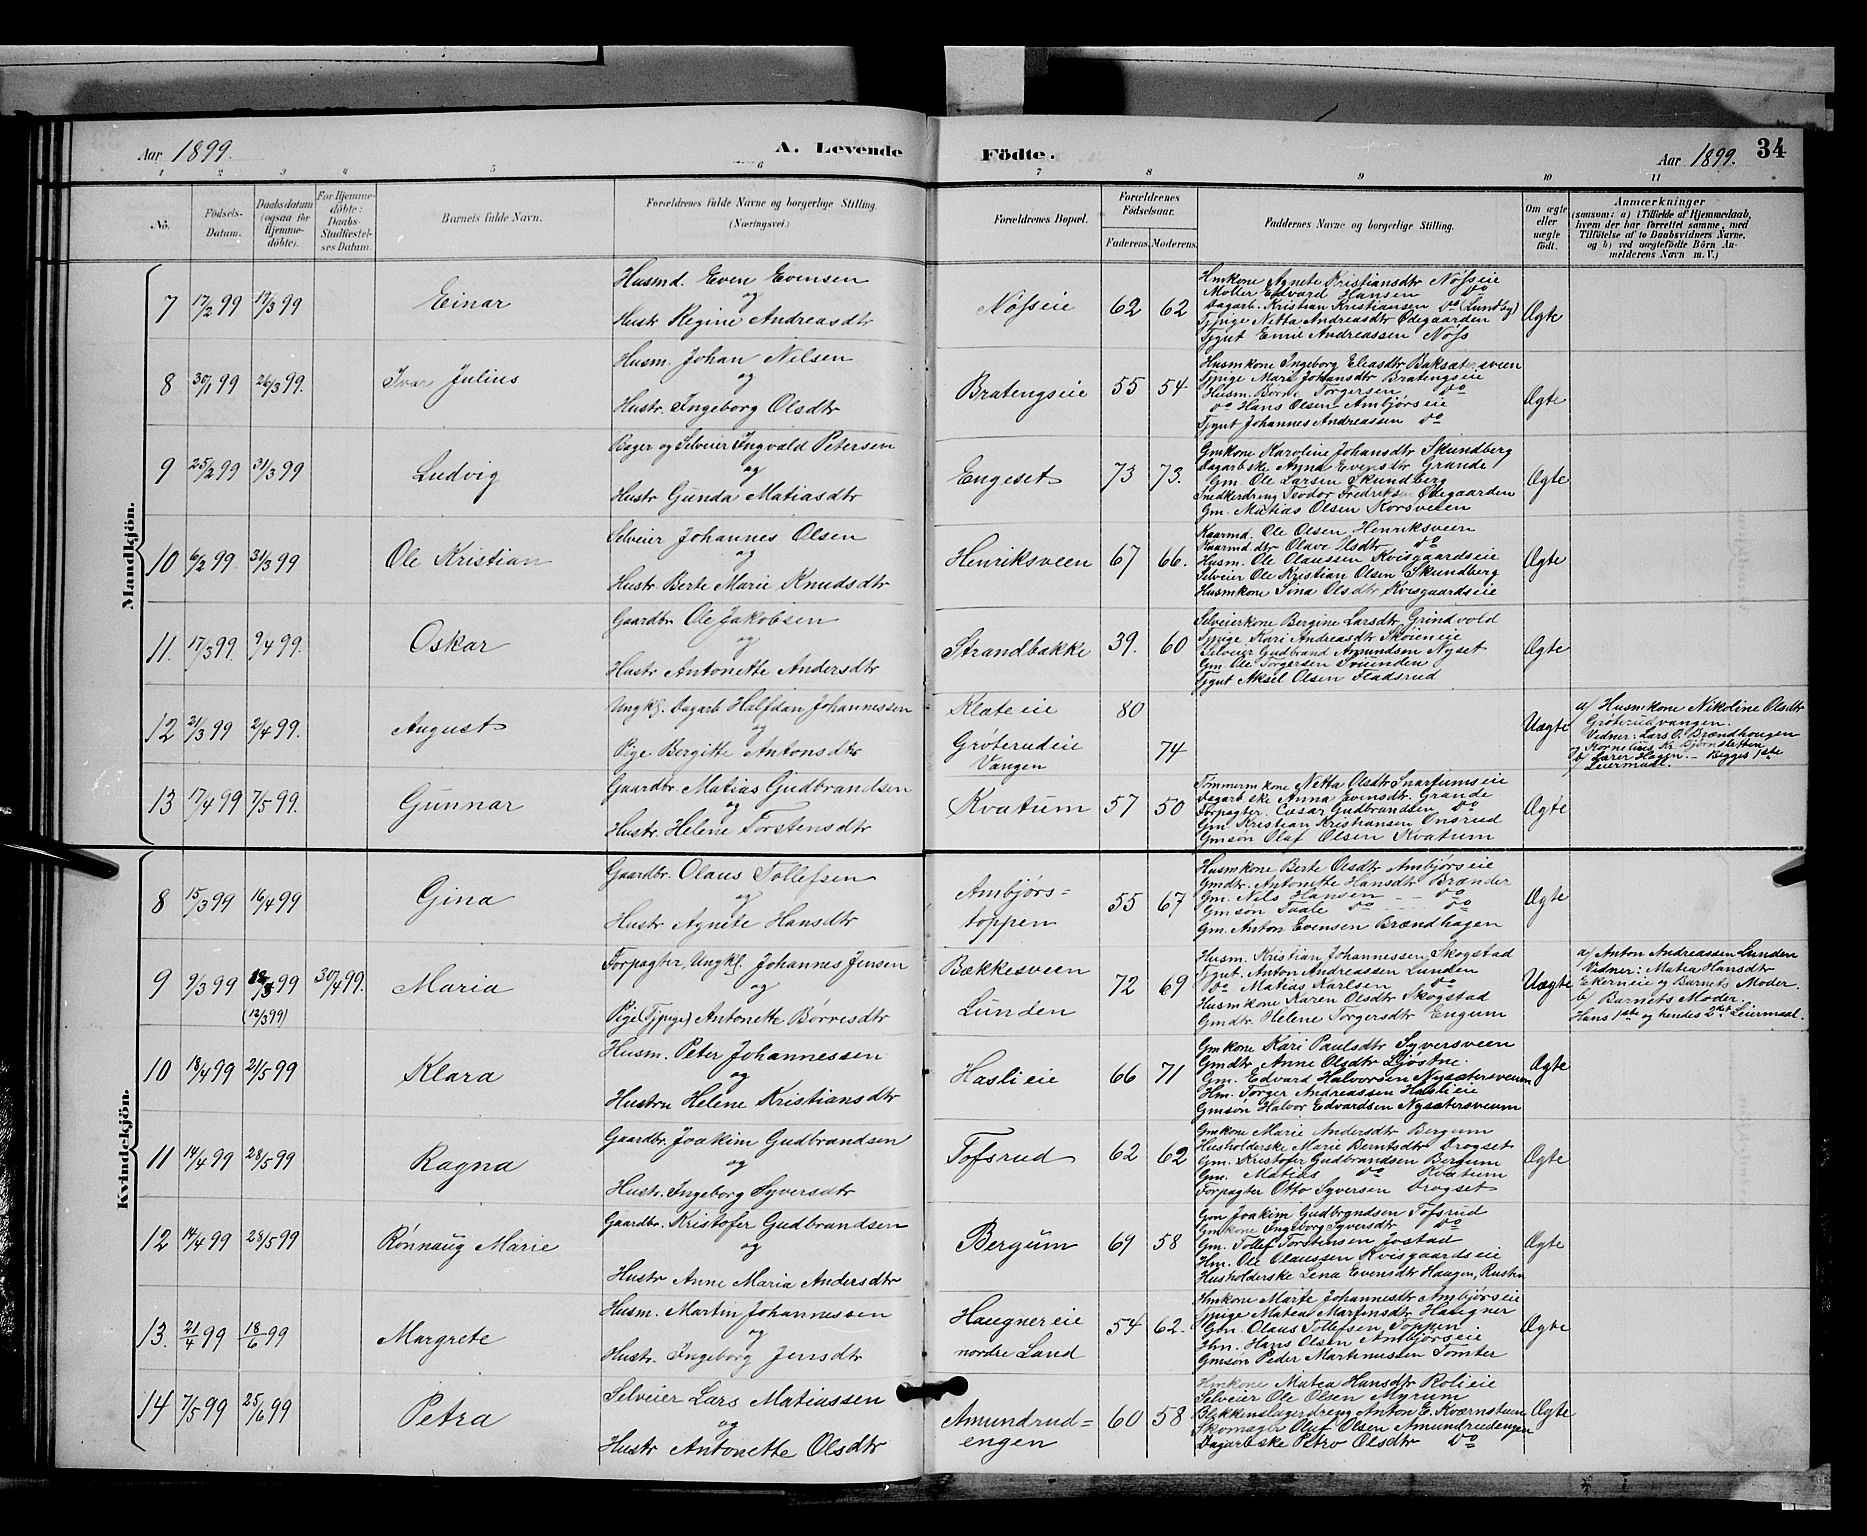 Aar 1899.
A. Levende
Födte.
Aar 1899.
34
1 2 3 4 5 6 7 8 9 10 11
No.
Födsels-Datum.
Daabsdatum (ogsaa for Hjemmedöbte).
For Hjemmedöbte: Daabs-Stadfæstelses Datum.
Barnets fulde Navn.
Forældrenes fulde Navne og borgerlige Stilling.
(Næringsvei.)
Forældrenes Bopæl.
Forældrenes Födselsaar.
Faderens. Moderens.
Faddernes Navne og borgerlige Stilling.
Om ægte eller uægte födt.
Anmærkninger
(saasom: a) i Tilfælde af Hjemmedaab, hvem der har forrettet samme, med Tilföielse af to Daabsvidners Navne, og b) ved uægtefödte Börn Anmelderens Navn m. V.)
Mandkjön.
7 17/2 99 19/3 99 Einar
Husmd. Even Evensen
og
Hustr Regine Andreasdtr
Nøfseie 62 62
Hmkone Agnete Kristiansdtr Nøfseie
Møller Edvard Hansen do
Dagarb. Kristian Kristiansen do (Lundby)
Tjpige Netta Andreasdtr Ødegaarden
Tjgut Emil Andreassen Nøfs
Ægte
8 30/1 99 26/3 99. Ivar Julius
Husm. Johan Nilsen
og
Hustr. Ingeborg Olsdtr
Bratengseie 55 54
Husmkone Ingeborg Eliasdtr Baksætersveen
Tjpige Mari Johansdtr Bratengseie
Husm. Børre Torgersen do
do Hans Olsen Ambjørseie
Tjgut Johannes Andreassen do
Ægte
9 25/2 99 31/3 99 Ludvig
Bager og Selveier Ingvald Petersen
og
Hustr Gunda Matiasdtr
Engeset 73 73.
Gmkone Karoline Johansdtr Skundberg
Dagarbske Anna Evensdtr Grande
Gm Ole Larsen Skundberg
Snedkerdreng Teodor Fredriksen Ødegaarden
Gm. Matias Olsen Korsveien
Ægte
10 6/2 99 31/3 99 Ole Kristian
Selveier Johannes Olsen
og
Hustr Berte Marie Knudsdtr
Henriksveen 67 66.
Kaarmd. Ole Olsen Henriksveen
Kaarmd.dtr Olave Olsdtr do
Husm. Ole Olaussen Kvisgaardseie
Selveier Ole Kristian Olsen Skundberg
Husmkone Sina Olsdtr Kvisgaardseie
Ægte
11. 17/3 99. 9/4 99. Oskar
Gaardbr. Ole Jakobsen
og
Hustr Antonette Andersdtr
Strandbakke 39. 60
Selveierkone Bergine Larsdtr Grindvold
Tjpige Kari Andreasdtr Skøieneie
Selveier Gudbrand Amundsen Nyset
Gm Ole Torgersen
Tjgut Aksel Olsen Fladsrud
Ægte
12 21/3 99 2/4 99. August
Ungkl. Dagarb Halfdan Johannessen
og
Pige Bergitte Antonsdtr
Klæteie 80
Grøterudeie
Vangen 74
Uægte
a/ Husmkone Nikoline Olsdtr
Grøterudvangen.
Vidner: Lars O. Brændhougen
og Kornelius Kr. Bjørnsletten
b/ Lærer Hagen. – Begges 1ste
Leiermaal.
13 17/4 99 7/5 99. Gunnar
Gaardbr. Matias Gudbrandsen
og
Hustr. Helene Torstensdtr
Kvatum 57 50
Tømmermkone Netta Olsdtr Snartumseie
Dagarbske Anna Evensdtr. Grande
Forpagter. Cæsar Gudbrandsen do
Gm Kristian Kristiansen Onsrud
Gmsøn Olaf Olsen Kvatum
Ægte
Kvindekjön.
8 15/3 99 16/4 99 Gina
Gaardbr. Olaus Tollefsen
og
Hustr Agnete Hansdtr
Ambjørs=
toppen 55 67
Husmkone Berte Olsdtr Ambjørseie
Gmdtr. Antonette Hansdtr Brænder
Gm. Nils Hansen do
Gmsøn Paale do do
Gm. Anton Evensen Brændhagen
Ægte
9 9/3 99 12/3 99 (12/3 99) 30/4 99. Maria
Forpagter, Ungkl. Johannes Jensen
og
Pige (Tjpige) Antonette Børresdtr
Bækkesveen
Lunden 72 69
Husm. Kristian Johannessen Skogstad
Tjgut. Anton Andreassen Lunden
do Matias Karlsen do
Husmkone Karen Olsdtr Skogstad
Gmdtr. Helene Torgersdtr Engum
Uægte
a/ Anton Andreassen Lunden
Vidner: Matea Hansdtr
Ekerneie og Barnets Moder.
b/ Barnets Moder.
Hans 1ste og hendes 2det Leiermaal.
10 18/4 99 21/5 99 Klara
Husm. Peter Johannessen
og
Hustru Helene Kristiansdtr
Haslieie 66 71
Gmkone Kari Paulsdtr Syversveen
Gmdtr. Anne Olsdtr Sjøstne.
Gm. Edvard Halvorsen Nysætersveum
Hm. Torger Andreassen Haslieie
Gmsøn Halvor Edvardsen Nysætersveum
Ægte
11 14/4 99 28/5 99 Ragna
Gaardbr. Joakim Gudbrandsen
og
Hustr. Ingeborg Syversdtr
Tofsrud 62 62
Gmkone Marie Andersdtr Bergum
Husholderske Marie Berntsdtr Drogset
Gm. Kristofer Gudbrandsen Bergum
Gm. Matias do Kvatum
Forpagter Otto Syversen Drogset
Ægte
12 14/4 99 28/5 99 Rønnaug Marie
Gaardbr. Kristofer Gudbrandsen
og
Hustr Anne Maria Andersdtr
Bergum 69 58
Gm Joakim Gudbrandsen Tofsrud
Gmkone Ingeborg Syversdtr do
Gm. Tollef Torstensen Jostad
Hm. Ole Olaussen Kvisgaardseie
Husholderske Lena Evensdtr Haugen, Rusten
Ægte
13. 21/4 99 18/6 99 Margrete
Husm. Martin Johannessen
og
Hustr. Ingeborg Jensdtr
Haugnereie
nordre Land 54 62.
Hmkone Marte Johannesdtr Ambjørseie
Tjpige Matea Martinsdtr Haugner
Gm. Olaus Tollefsen Toppen
Hm. Hans Olsen Ambjørseie
Gmsøn Peder Martinussen Tomter
Ægte
14 7/5 99 25/6 99 Petra
Selveier Lars Matiassen
og
Hustr Antonette Olsdtr
Amundrud=
engen 60 58
Hmkone Matea Hansdtr Rolieie
Selveier Ole Olsen Myrum
Blikkenslagerdreng Anton E. Kværnstuen
Skomager Oluf Olsen Amundrudengen
Dagarbske Petro Olsdtr do
Ægte